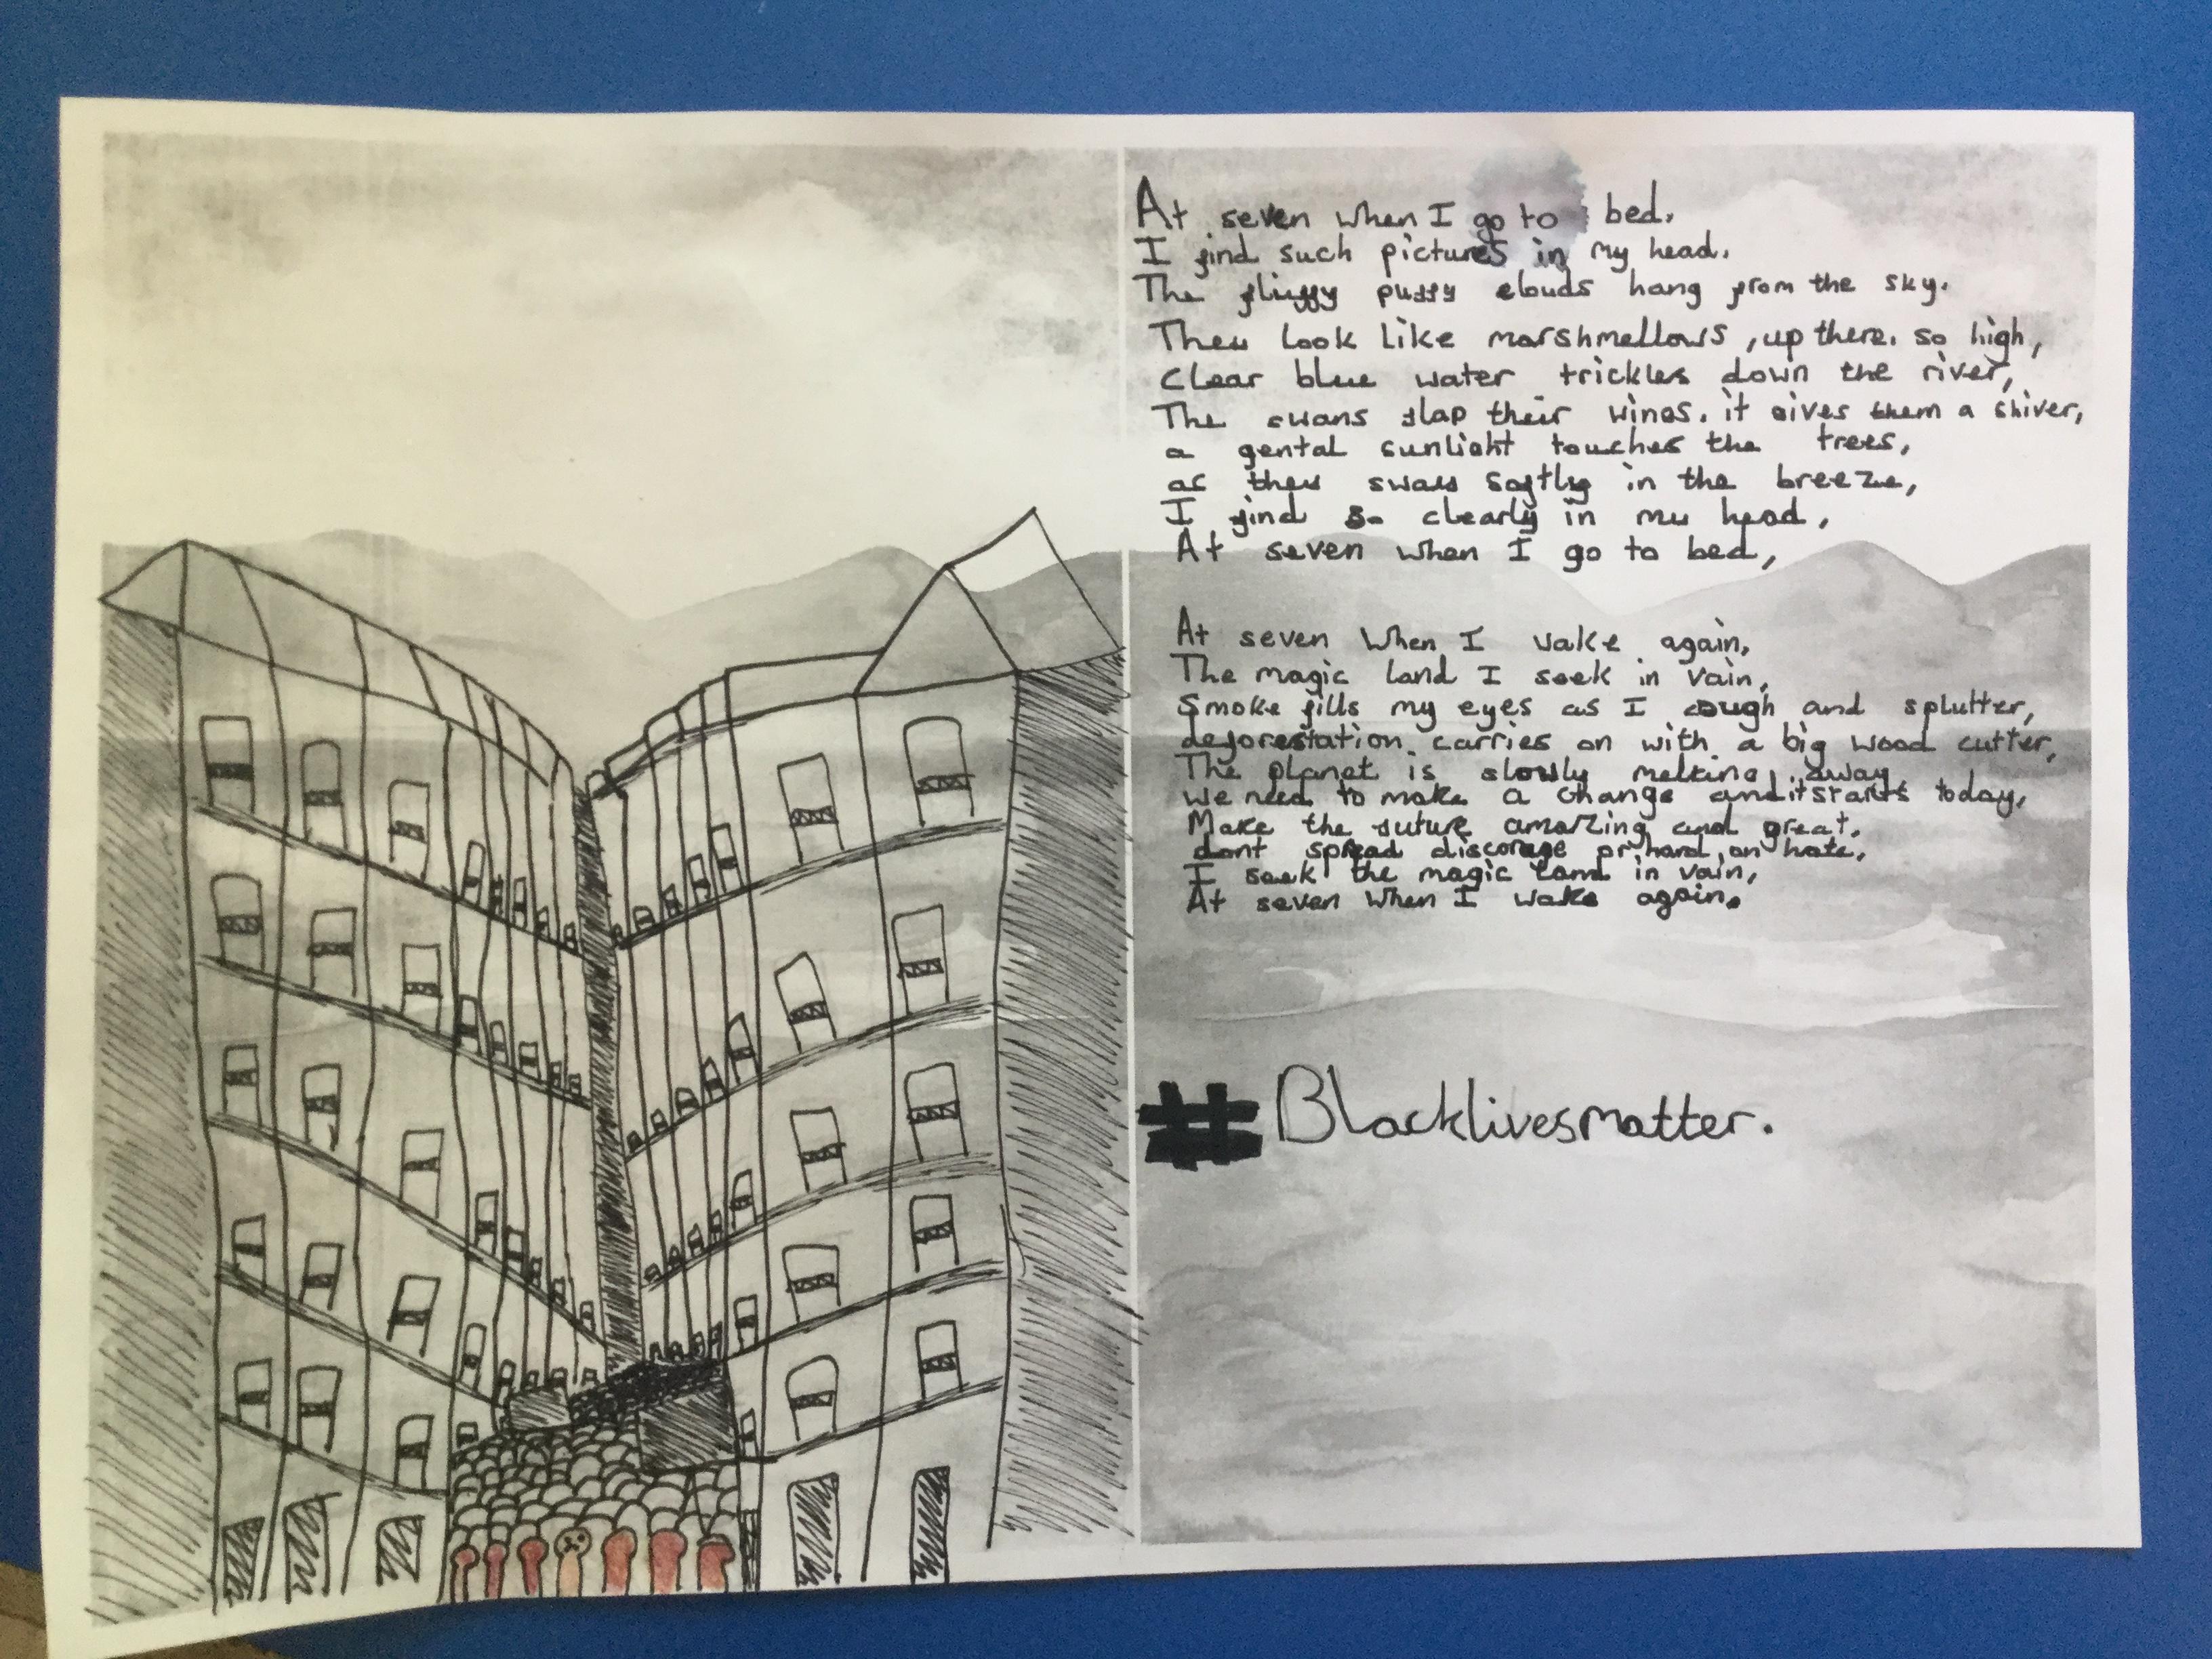 At seven when I go to bed.
I find such pictures in my head.
The fluffy puffy clouds hang from the sky.
They look like marshmellows, up there. so high,
Clear blue water trickles down the river,
The swans flap their wings. it gives them a shiver,
a gental sunlight touches the trees,
as they sways softly in the breeze,
I find so clearly in my head,
At seven when I go to bed,
At seven when I wake again,
The magic land I seek in vain,
Smoke fills my eyes as I cough and splutter,
deforestation. carries on with a big wood cutter,
The planet is slowly melting away
we need to make a change and it starts today,
Make the future amazing and great.
dont spread discorage or hand on hate,
I seek the magic land in vain,
At seven when I wake again.
#Blacklivesmatter.